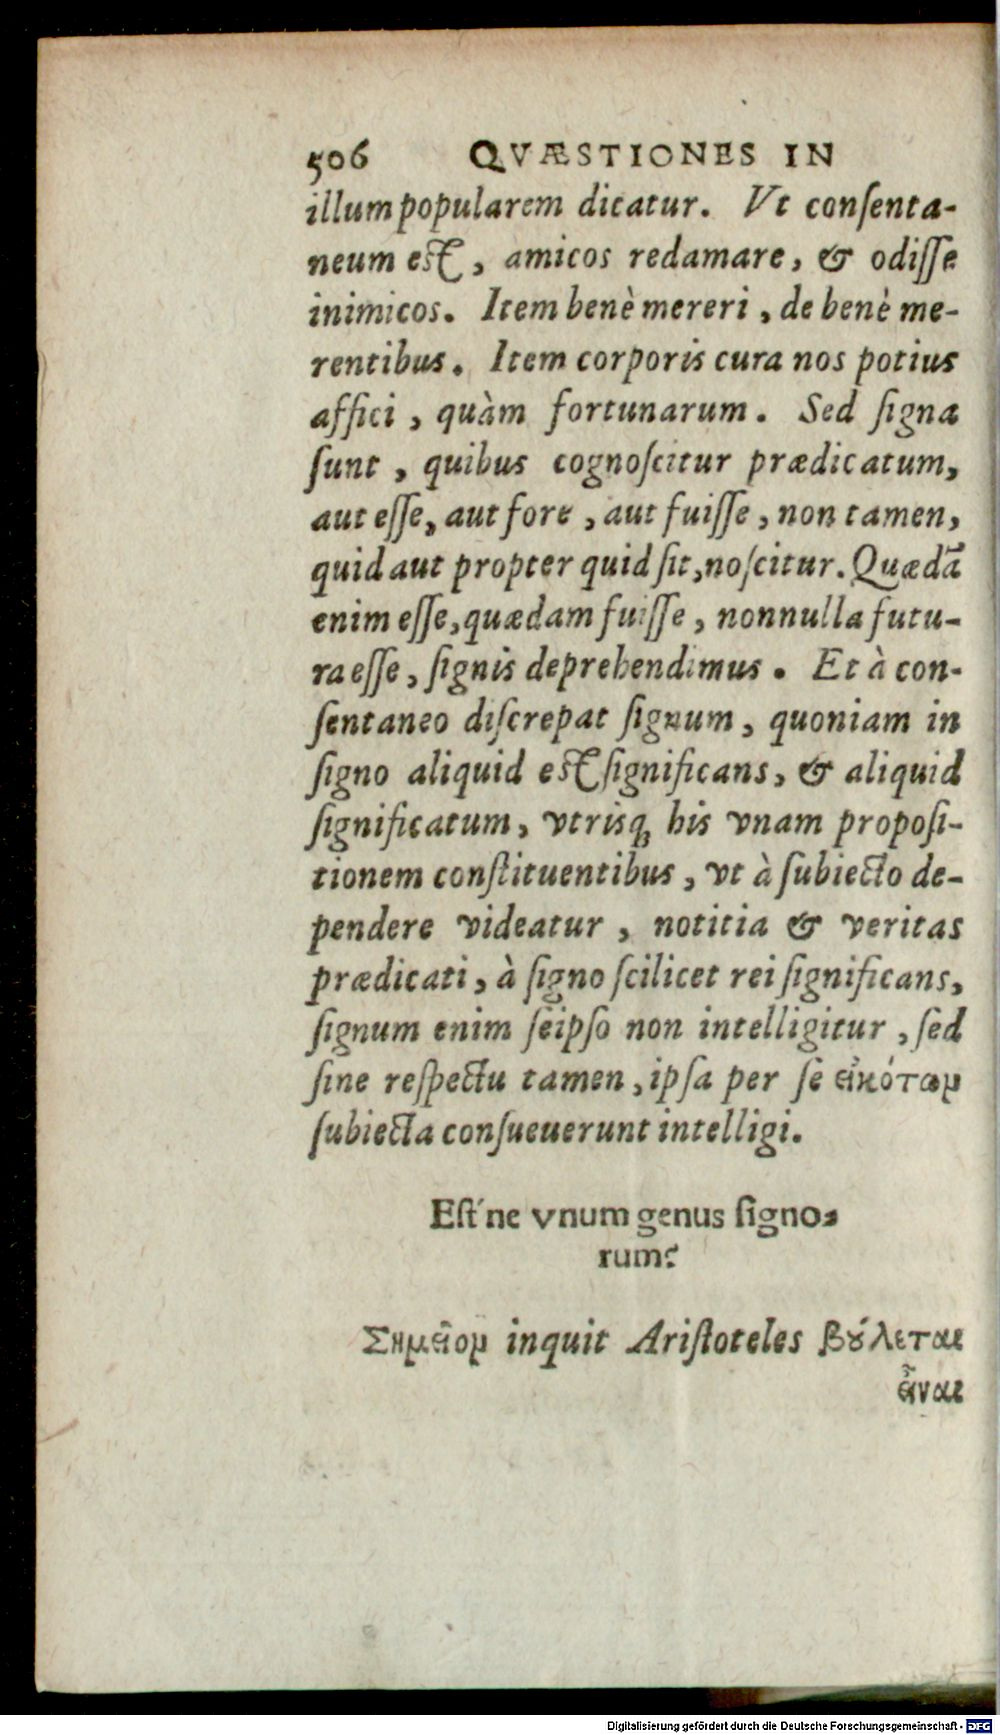 506 QVÆSTIONES IN
illum popularem dicatur. Vt conſenta-
neum eſt, amicos redamare, & odiſſe
inimicos. Item benè mereri, de benè me-
rentibus. Item corporis cura nos potius
affici, quàm fortunarum. Sed ſigna
ſunt, quibus cognoſcitur prædicatum,
aut eſſe, aut fore, aut fuiſſe, non tamen,
quid aut propter quid ſit, noſcitur. Quædã
enim eſſe, quædam fuiſſe, nonnulla futu-
ra eſſe, ſignis deprehendimus. Et à con-
ſentaneo diſcrepat ſignum, quoniam in
ſigno aliquid eſt ſignificans, & aliquid
ſignificatum, vtrisq́; his vnam propoſi-
tionem conſtituentibus, vt à ſubiecto de-
pendere videatur, notitia & veritas
prædicati, à ſigno ſcilicet rei ſignificans,
ſignum enim ſeipſo non intelligitur, ſed
ſine reſpectu tamen, ipſa per ſe εἰκότων
ſubiecta conſueuerunt intelligi.
Eſt'ne vnum genus ſigno-
rum?
Σημεῖον inquit Ariſtoteles βούλεται
εἶναι
Digitalisierung gefördert durch die Deutsche Forschungsgemeinschaft - DFG